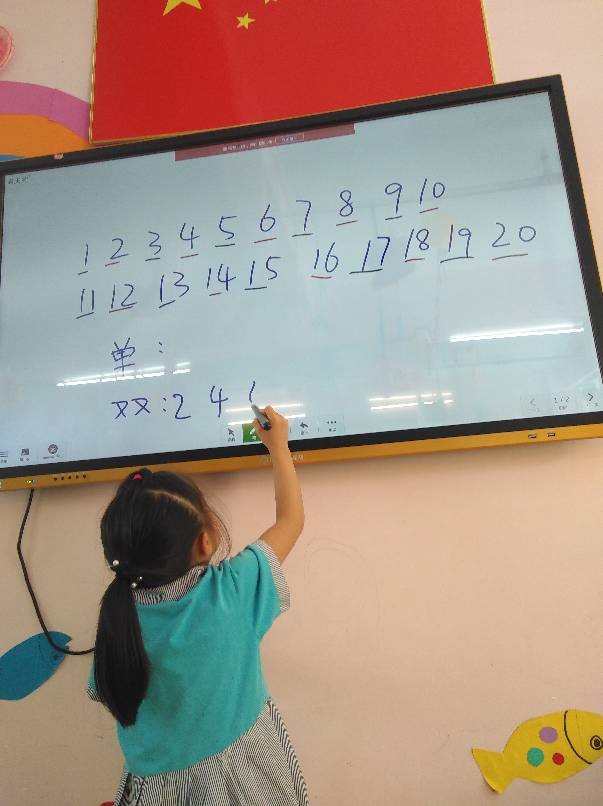 1 2 3 4 5 6 7 8 9 10
11 12 13 14 15 16 17 18 19 20
单:
双:2 4
1/2